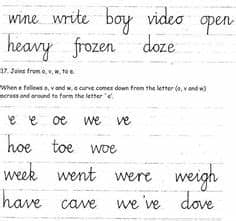 wine write boy video open
heavy frozen doze
37. Joins from o, v, w, to e.
When e follows o, v and w, a curve comes down from the letter (o, v and w)
across and around to form the letter 'e'.
e e oe we ve
hoe toe woe
week went were weigh
have cave we've dove